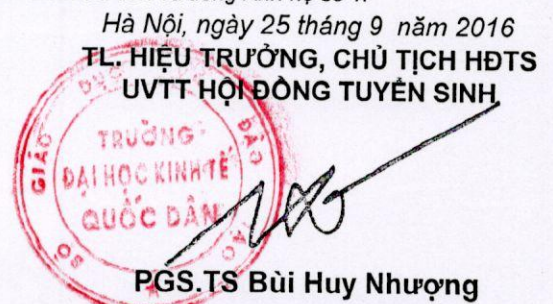 Hà Nội, ngày 25 tháng 9 năm 2016
TL. HIỆU TRƯỞNG, CHỦ TỊCH HĐTS
UVTT HỘI ĐỒNG TUYỂN SINH
GIÁO DỤC ĐÀO TẠO
TRƯỜNG
ĐẠI HỌC KINH TẾ
QUỐC DÂN
PGS.TS Bùi Huy Nhượng